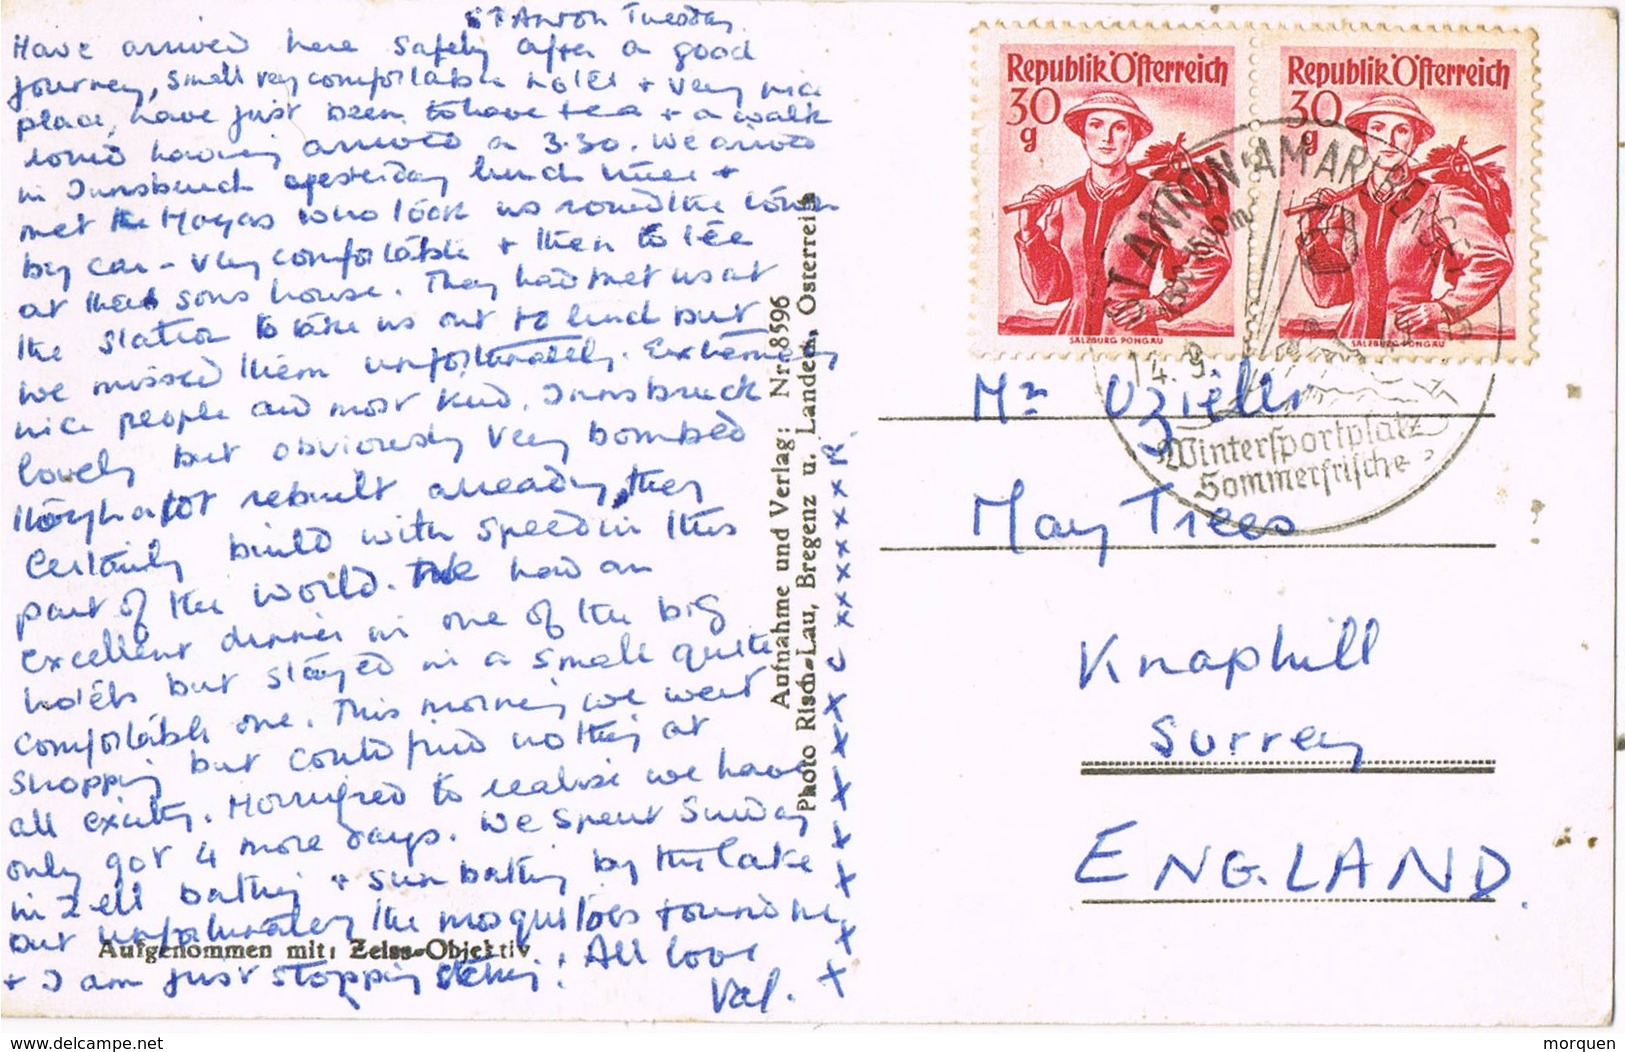 St Anton Tuesday
Have arrived here safely after a good
journey, small very comfortable hotel + very nice
place, have just been to have tea + a walk
round having arrived a 3.30. We arrived
in Innsbruck yesterday lunch time +
met the who took us round the town
by car - very comfortable + then to tea
at their sons house. They had met us at
the station to take us out to lunch but
we missed them unfortunately. Extremely
nice people and most kind. Innsbruck
lovely but obviously very bombed
though a lot rebuilt already, they
certainly build with speed in this
part of the world. We had an
excellent dinner in one of the big
hotels but stayed in a small quite
comfortable one. This morning we went
shopping but could find nothing at
all exciting. Horrified to realise we have
only got 4 more days. We spent Sunday
in Zell bathing + sun bathing by the lake
but unfortunately the mosquitoes found me
+ I am just stopping itching! All love
Val.
Aufgenommen mit: Zeiss-Objektiv
Aufnahme und Verlag: Nr. 8596
Photo Risch-Lau, Bregenz u. Landeck, Österreich
Republik Österreich
30 g
SALZBURG PONGAU
Republik Österreich
30 g
SALZBURG PONGAU
ST ANTON AM ARLBERG
14. 9.
Wintersportplatz
Sommerfrische
Mr Uzielli
May Trees
Knaphill
Surrey
ENGLAND.
delcampe.net
morquen